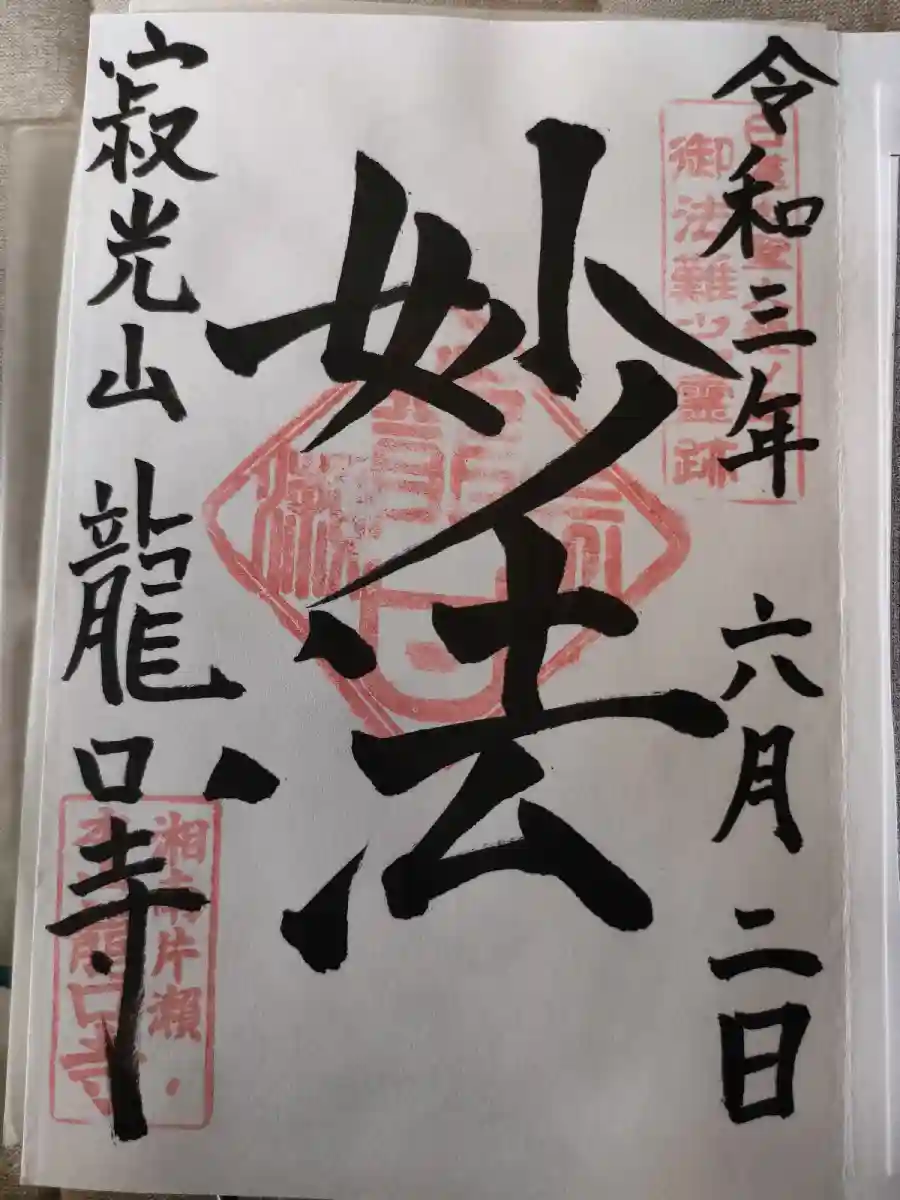 令和三年 六月二日
御法難之霊跡
妙法
寂光山 龍口寺
湘南片瀬
龍口寺